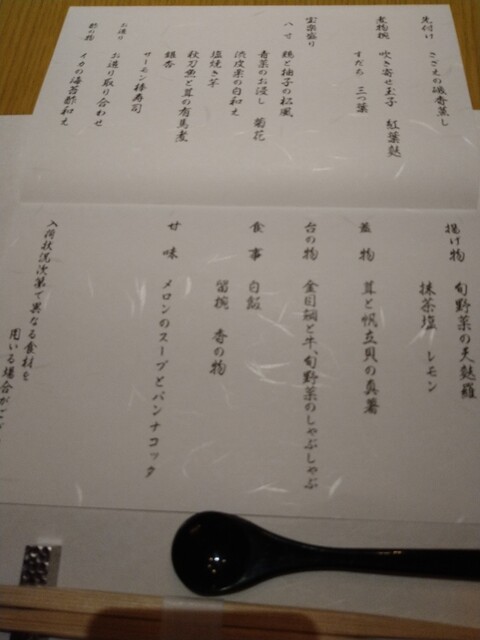 先付け さざえの磯香蒸し
煮物椀 吹き寄せ玉子 紅葉麩
すだち 三つ葉
宝楽盛り
八寸 鶏と柚子の松風
青菜のお浸し 菊花
渋皮栗の白和え
塩焼き竿
秋刀魚と茸の有馬煮
銀杏
サーモン棒寿司
お造り お造り取り合わせ
酢の物 イカの海苔酢和え
揚げ物 旬野菜の天麩羅
抹茶塩 レモン
蓋物 茸と帆立貝の真薯
台の物 金目鯛と牛、旬野菜のしゃぶしゃぶ
食事 白飯
留椀 香の物
甘味 メロンのスープとパンナコッタ
入荷状況次第で異なる食材を
用いる場合がご